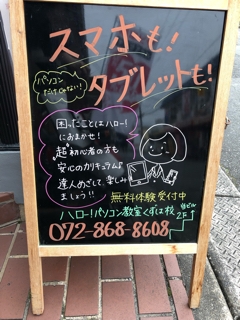 スマホも!
パソコン
だけじゃない!
タブレットも!
困ったことはハロー!
におまかせ!
"超"初心者の方も
安心のカリキュラム♪
達人めざして、楽しみ
ましょう!!
無料体験受付中
ハロー!パソコン教室くずは校
072-868-8608
2F